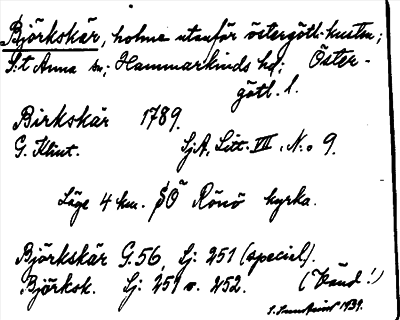 Björkskär, holme utanför östergötl. kusten;
S:t Anna sn; Hammarkinds hd; Öster-
götl. l.
Birkskär 1789.
G. Klint. Sj.A. Litt. VII. N:o 9.
Läge 4 km. SÖ Rönö kyrka.
Björkskär G.56, Sj: 251 (special).
Björksk. Sj: 251 o. 252. (Vänd!)
1939.